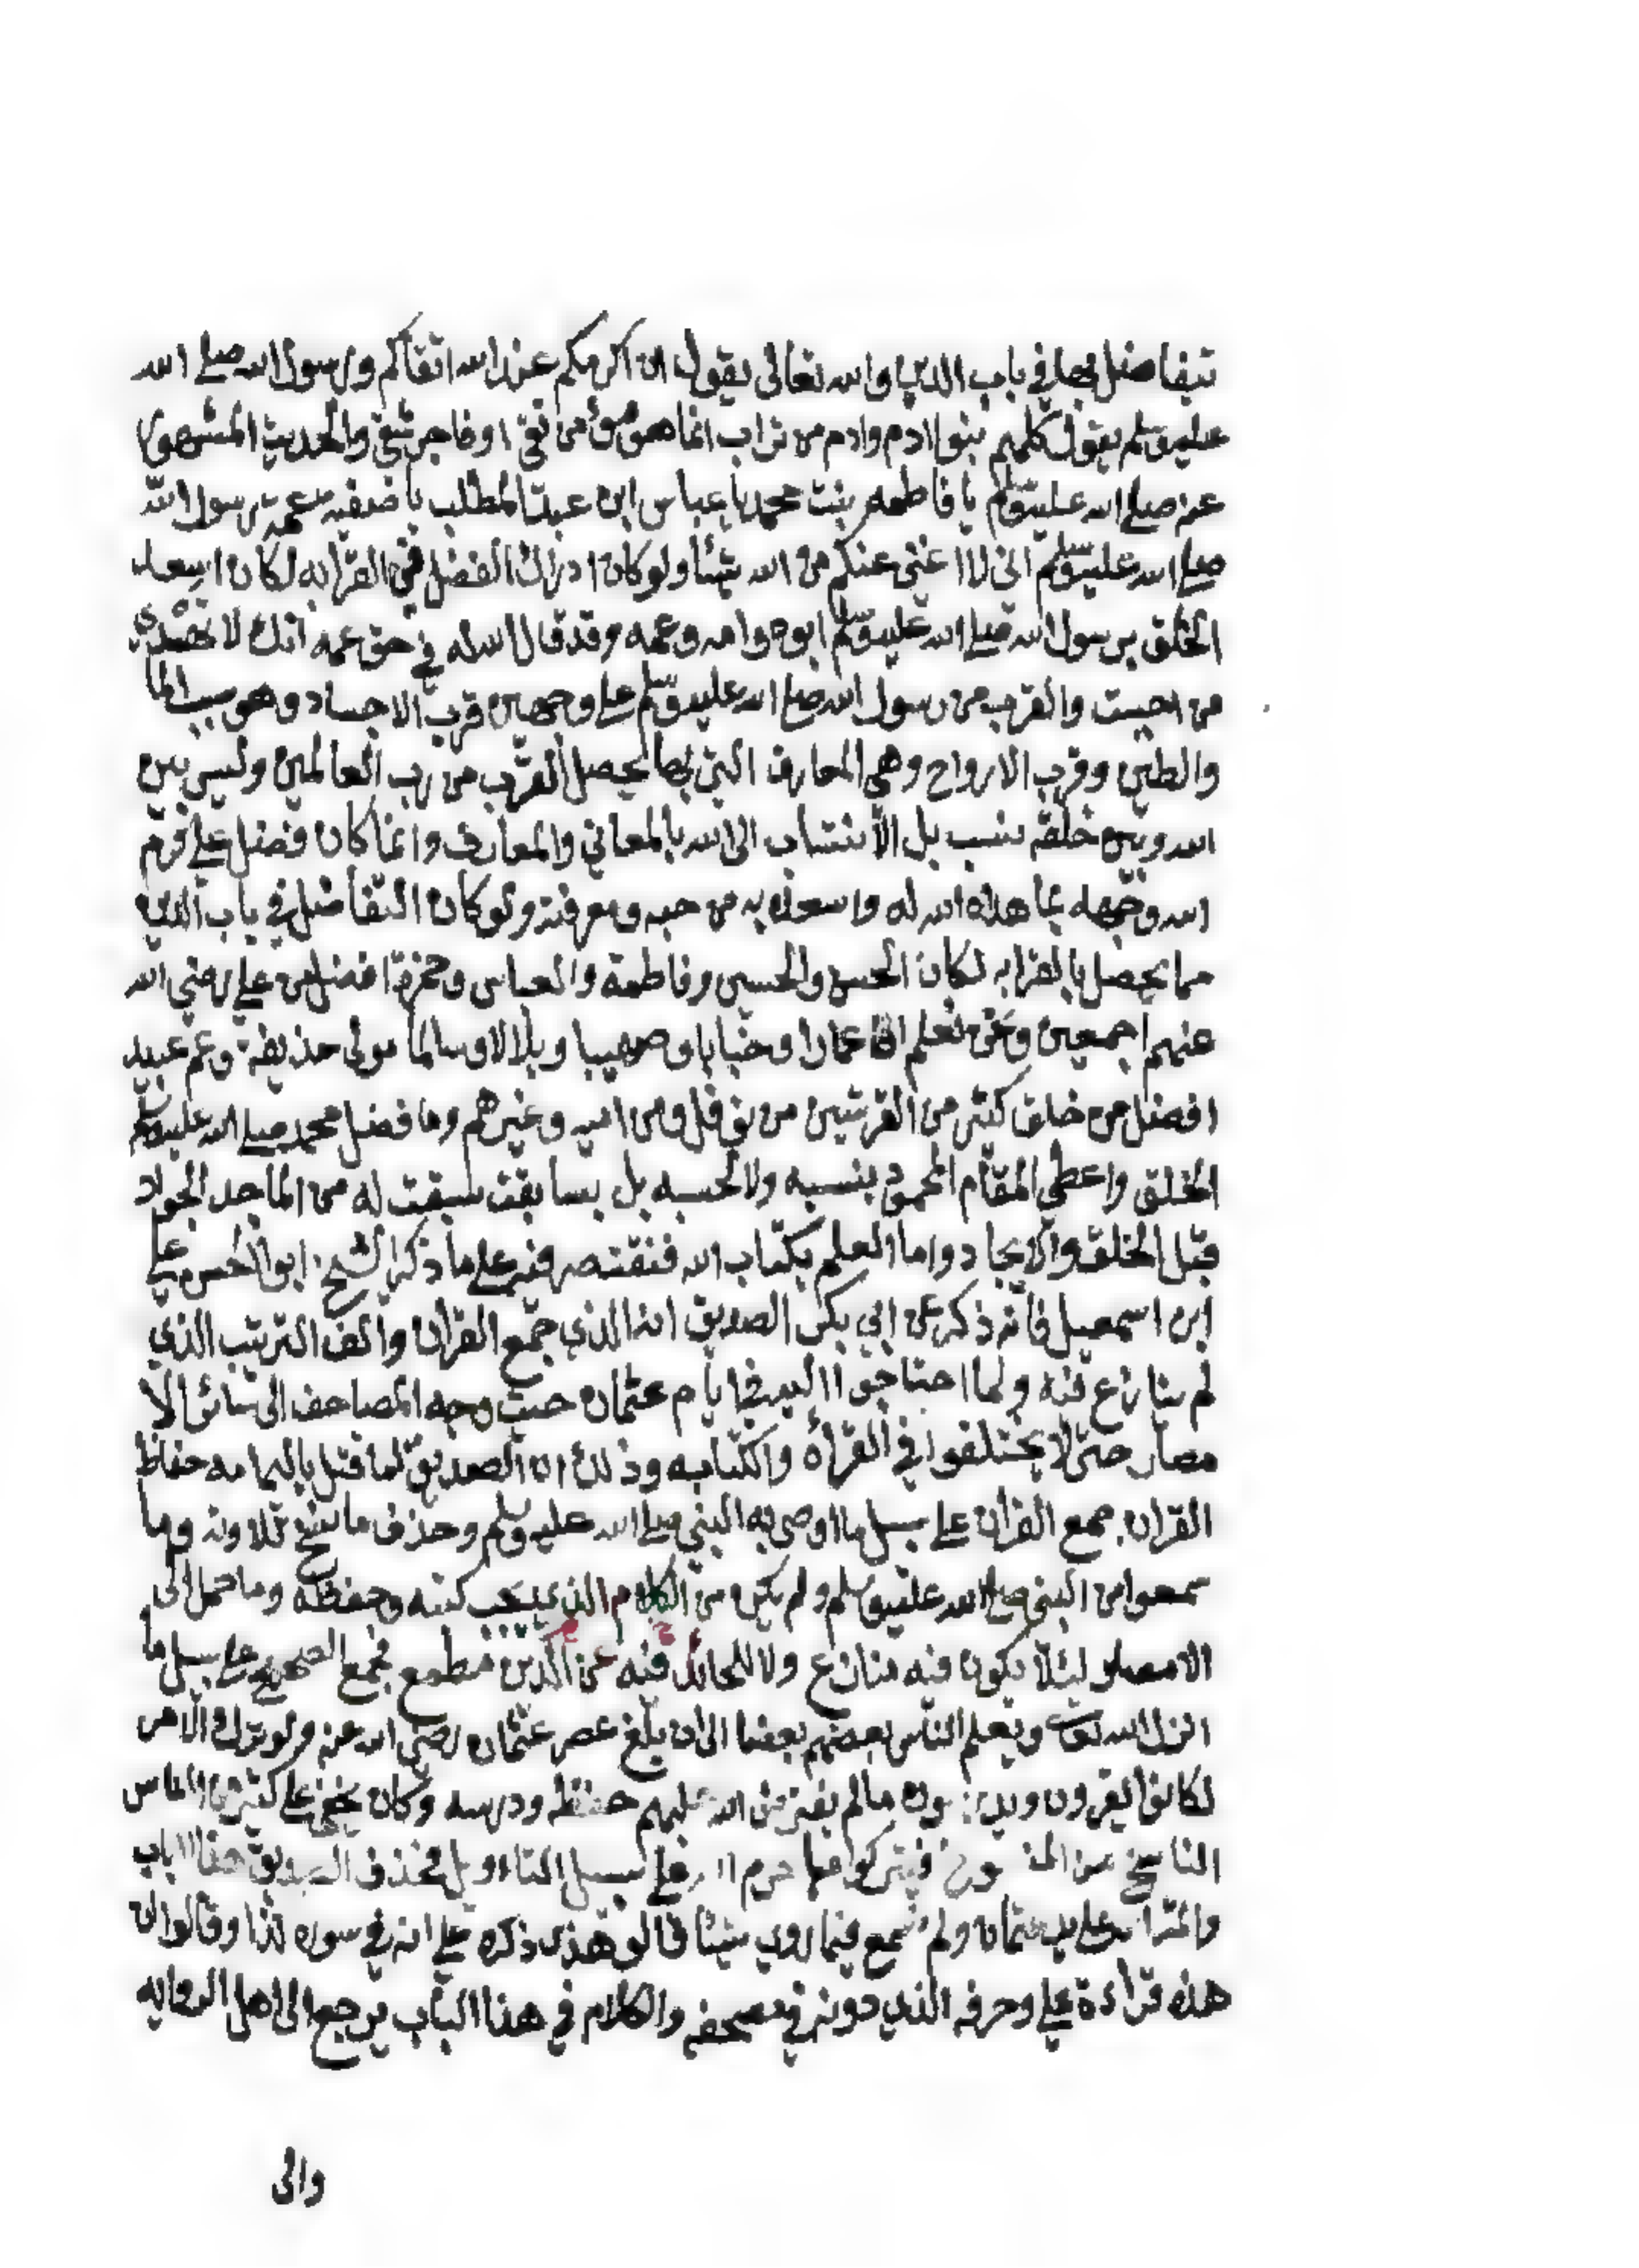 تتفاضل بها في باب الدين والله تعالى يقول ان اكرمكم عند الله اتقاكم ورسول الله صلى الله
عليه وسلم يقول كلهم بنوا ادم وادم من تراب انما هو مؤمن تقي او فاجر شقي والحديث المشهور
عنه صلى الله عليه وسلم يا فاطمه بنت محمد يا عباس ابن عبد المطلب يا صفيه عمة رسول الله
صلى الله عليه وسلم اني لا اغني عنكم من الله شيئا ولو كان ادراك الفضل في القرابه لكان اسعد
الخلق برسول الله صلى الله عليه وسلم ابوه وامه وعمه وقد قال الله له في حق عمه انك لا تهدي
من احببت والقرب من رسول الله صلى الله عليه وسلم على وجهين قرب الاجساد وهو سبب الما
والطين وقرب الارواح وهي المعارف التي بها يحصل القرب من رب العالمين وليس بين
الله وبين خلقه نسب بل الانتساب الى الله بالمعاني والمعارف وانما كان فضل علي كرم
الله وجهه بما هداه الله له واسعده به من حبه ومعرفته ولو كان التفاضل في باب الدين
مما يحصل بالقرابه لكان الحسن والحسين وفاطمة والعباس وحمزة افضل من علي رضي الله
عنهم اجمعين ونحن نعلم ان عمارا وخبابا وصهيبا وبلالا وسالما مولى حذيفة وعم عبيد
افضل من خلق كثير من القرشيين من نوفل ومن اميه وغيرهم وما فضل محمد صلى الله عليه وسلم
الخلق واعطي المقام المحمود بنسبه ولا لحسبه بل بسابقت سبقت له من الماجد الجواد
قبل الخلق والايجاد واما العلم بكتاب الله فنقتصر فيه على ما ذكر الشيخ ابو الحسن علي
ابن اسمعيل فانه ذكر عن ابي بكر الصديق انه الذي جمع القران والف الترتيب الذي
لم ينازع فيه ولما احتاجوا اليه في ايام عثمان حيث وجه المصاحف الى سائر الا
مصار حتى لا يختلفوا في القرأة والكتابه وذلك ان الصديق لما قتل باليمامه حفاظ
القران جمع القران على سبيل ما اوصى به النبي صلى الله عليه وسلم وحذف ما نسخ تلاوته وما
سمعوا من النبي صلى الله عليه وسلم ولم يكن من الكلام الذي يجب كتبه وحفظه وما حمل الى
الامصار ليئلا يكون فيه منازع ولا للحائد فيه عن الدين مطمع فجمع الصحيح على سبيل ما
انزل الله تعالى ويعلم الناس بعضهم بعضا الى ان بلغ عصر عثمان رضي الله عنه ولو ترك الامر
لكانوا يقرون ويدرسون ما لم يفترض الله عليهم حفظه ودرسه وكان يخفى على كثير من الناس
الناسخ من فيتركوا حرم على سبيل التاويل فحذف الصديق
على يد عثمان ولم نسمع فيما روي شيئا قالو هذى ذكره علي انه في سوره كذا وقالوا ان
هذه قراءة علي وحرفه الذي دونه في مصحفه والكلام في هذا الباب يرجع الى اهل الروايه
والى